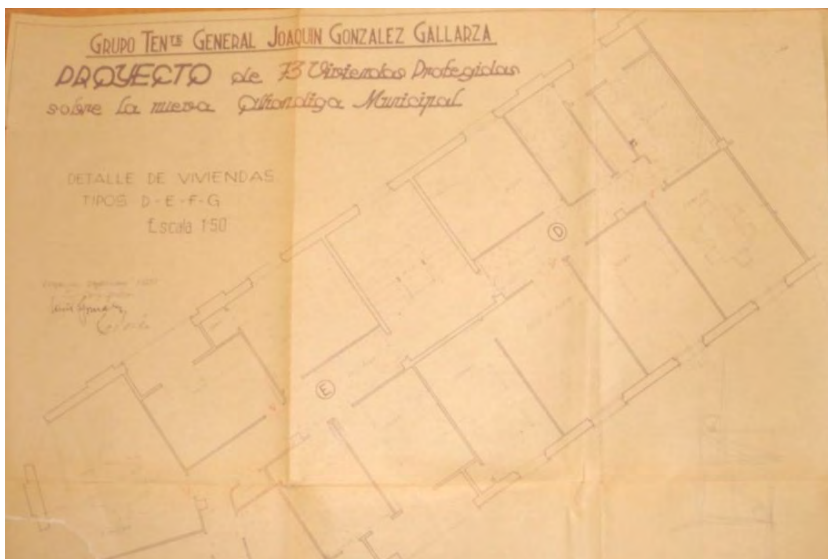 GRUPO TENTE GENERAL JOAQUIN GONZALEZ GALLARZA
PROYECTO de 73 Viviendas Protegidas
sobre la nueva Alhondiga Municipal
DETALLE DE VIVIENDAS
TIPOS D-E-F-G
Escala 1:50
D
E